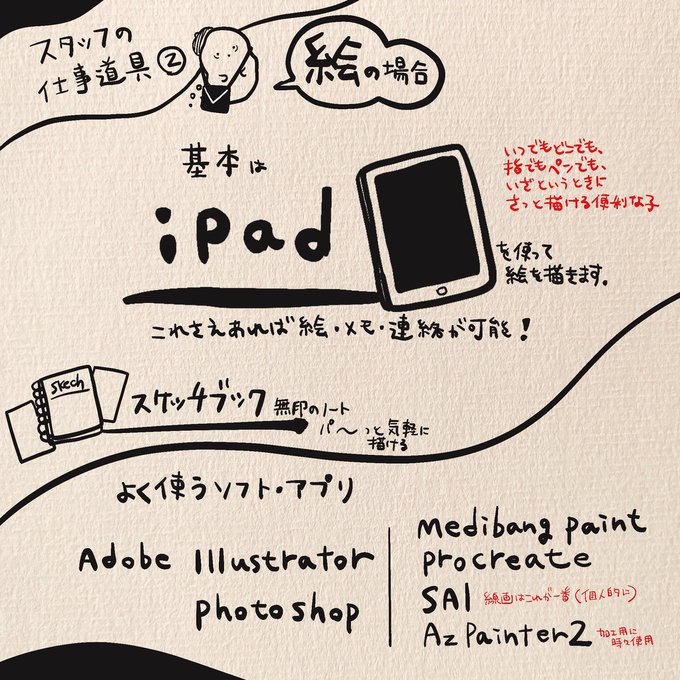 スタッフの
仕事道具②
絵の場合
基本は
iPad
いつでもどこでも、
指でもペンでも、
いざというときに
さっと描ける便利な子
を使って
絵を描きます。
これさえあれば絵・メモ・連絡が可能！
skech
スケッチブック 無印のノート
パ〜っと気軽に
描ける
よく使うソフト・アプリ
Adobe Illustrator
photoshop
medibang paint
procreate
SAI 線画はこれが一番（個人的に）
AzPainter2 加工用に
時々使用